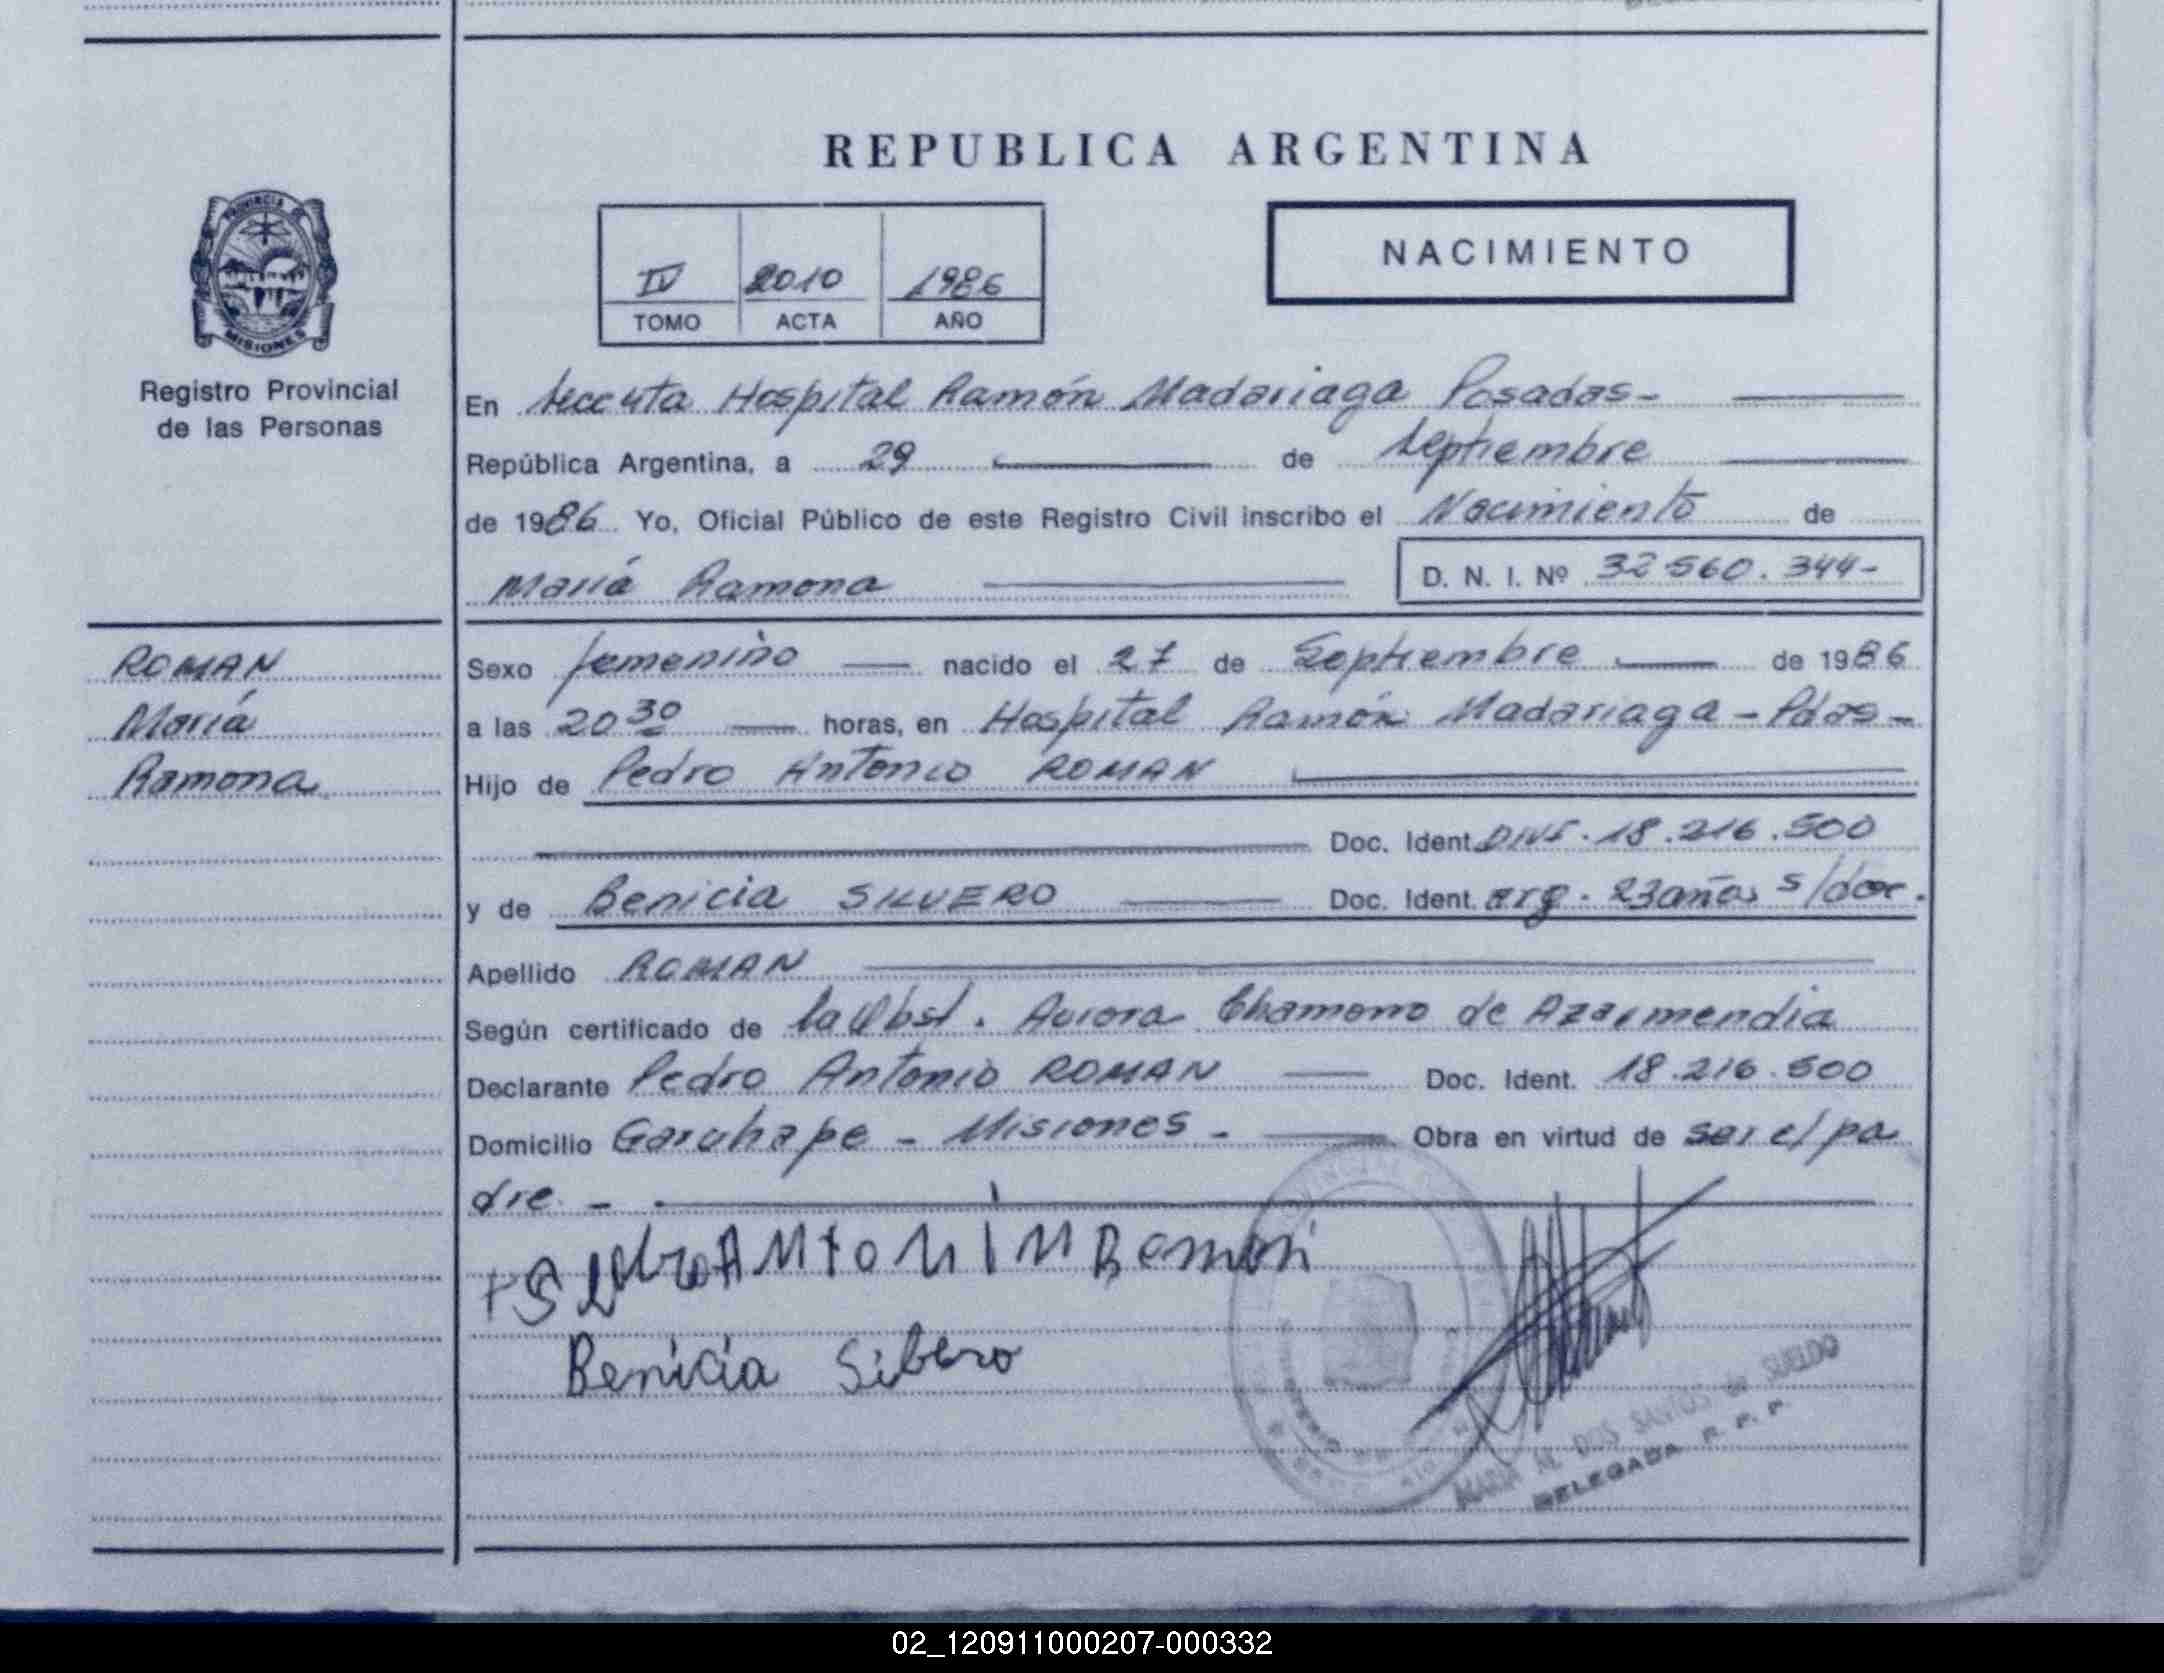 REPUBLICA ARGENTINA
PROVINCIA DE
MISIONES
Registro Provincial
de las Personas
IV 2010 1986
TOMO ACTA AÑO
NACIMIENTO
En Hospital Ramón Madariaga Posadas-
República Argentina, a 29 de Septiembre
de 1986 Yo, Oficial Público de este Registro Civil inscribo el Nacimiento de
María Ramona
D. N. I. Nº 32 560. 344-
ROMAN
María
Ramona
Sexo femenino nacido el 27 de Septiembre de 1986
a las 20 30 horas, en Hospital Ramón Madariaga - Pdas-
Hijo de Pedro Antonio ROMAN
Doc. Ident. DNI. 18.216.500
y de Benicia SILVERO Doc. Ident. arg. 23 años s/doc.
Apellido ROMAN
Según certificado de la Obst. Aurora Chamorro de
Declarante Pedro Antonio ROMAN Doc. Ident. 18.216.500
Domicilio Garuhape - Misiones - Obra en virtud de ser el pa
dre -
Benicia Sibero
MARIA DOS SANTOS de SUELDO
DELEGADA R. P. P.
02_120911000207-000332